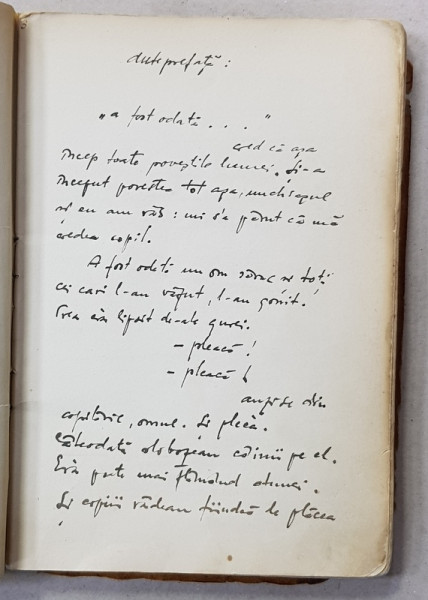 antеprefaţă:
„a fost odată . . . "
cred că aşa
încep toate poveştile lumei. Şi-a
început povestea tot aşa, unchiaşul
şi eu am râs: mi s'a părut că mă
credea copil.
A fost odată un om sărac şi toţi
cei cari l-au văzut, l-au gonit.
Prea era lipsit de-ale gurei.
- pleacă!
- pleacă!
auzise din
copilărie, omul. Şi pleca.
Câteodată slobozeau câinii pe el.
Era parte mai flămând atunci.
Şi copiii râdeau fiindcă le plăcea